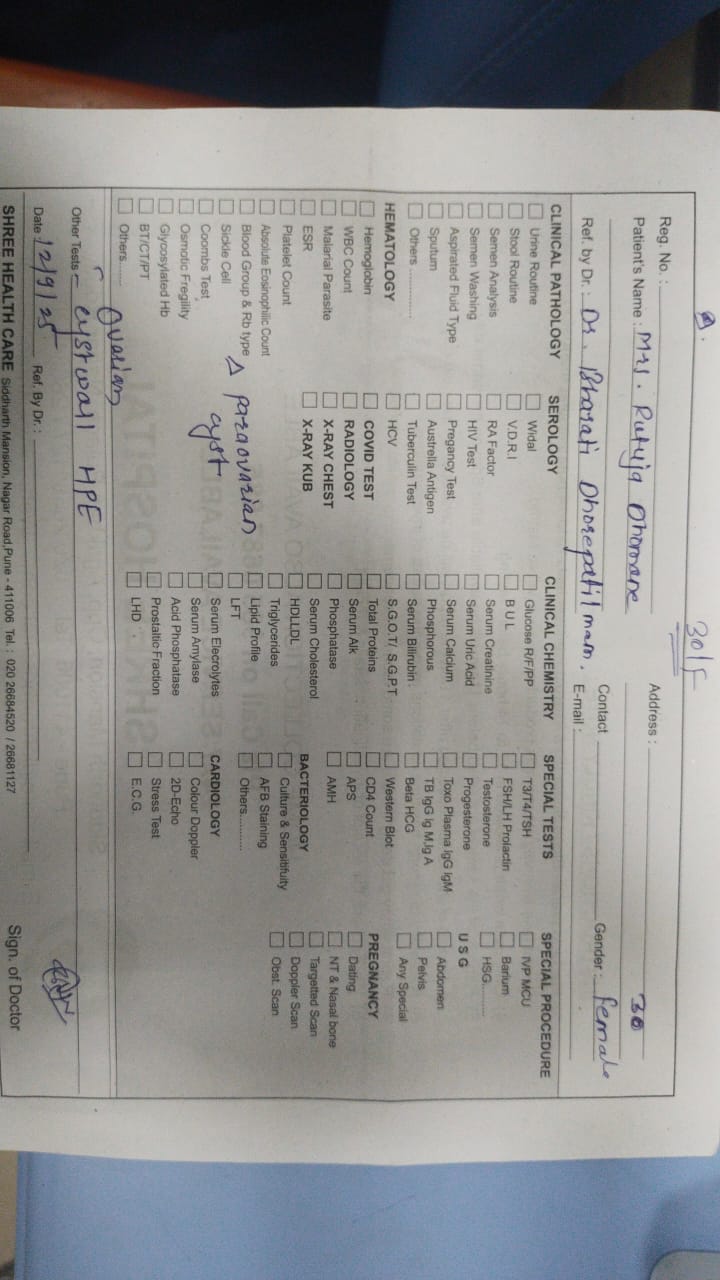 30/F
Reg. No. :
Address :
Patient's Name : Mrs. Rutuja Dhomane
30
Contact
Gender : female
Ref. by Dr. : Dr. Bharati Dhorepatil mam.
E-mail :
CLINICAL PATHOLOGY
Urine Routine
Stool Routine
Semen Analysis
Semen Washing
Aspirated Fluid Type
Sputum
Others ................
HEMATOLOGY
Hemoglobin
WBC Count
Malarial Parasite
ESR
Platelet Count
Absolute Eosinophilic Count
Blood Group & Rb type
Sickle Cell
Coombs Test
Osmotic Fregility
Glycosylated Hb
BT/CT/PT
Others.......
SEROLOGY
Widal
V.D.R.I
RA Factor
HIV Test
Pregancy Test
Austrella Antigen
Tuberculin Test
HCV
COVID TEST
RADIOLOGY
X-RAY CHEST
X-RAY KUB
Δ paraovarian
cyst
CLINICAL CHEMISTRY
Glucose R/F/PP
B U L
Serum Creatinine
Serum Uric Acid
Serum Calcium
Phosphorous
Serum Bilirubin .
S.G.O.T/ S.G.P.T
Total Proteins
Serum Alk
Phosphatase
Serum Cholesterol
HDLLDL
Triglycerides
Lipid Profile
LFT
Serum Elecrolytes
Serum Amylase
Acid Phosphatase
Prostaltic Fraction
LHD
SPECIAL TESTS
T3/T4/TSH
FSH/LH Prolactin
Testosterone
Progesterone
Toxo Plasma IgG IgM
TB IgG Ig M,Ig A
Beta HCG
Western Blot
CD4 Count
APS
AMH
BACTERIOLOGY
Culture & Sensitifuity
AFB Staining
Others...........
CARDIOLOGY
Colour Doppler
2D-Echo
Stress Test
E.C.G.
SPECIAL PROCEDURE
IVP MCU
Barium
HSG..........
U S G
Abdomen
Pelvis
Any Special
PREGNANCY
Dating
NT & Nasal bone
Targetted Scan
Doppler Scan
Obst. Scan
Ovarian
Other Tests - cyst wall HPE
Date 12/9/25 Ref. By Dr. :
Sign. of Doctor
SHREE HEALTH CARE Siddharth Mansion, Nagar Road,Pune - 411006 Tel : 020 26684520 / 26681127